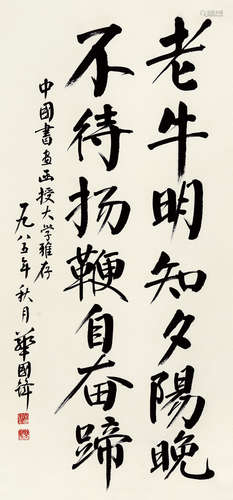 老牛明知夕陽晚
不待扬鞭自奋蹄
中國書画函授大学雅存
一九八五年秋月 華國鋒